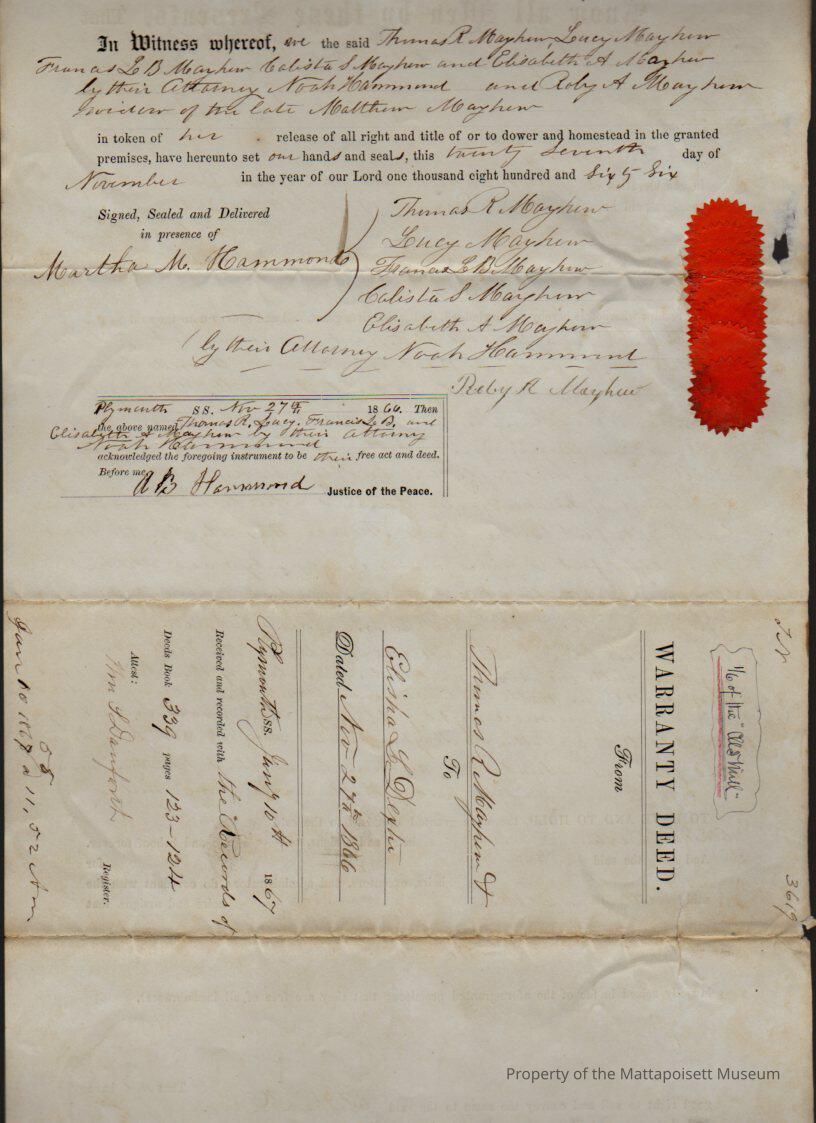 In Witness whereof, we the said Thomas R Mayhew, Lucy Mayhew
Francis L B Mayhew Calista S Mayhew and Elisabeth A Mayhew
by their Attorney Noah Hammond and Roby A Mayhew
widow of the late Matthew Mayhew
in token of her release of all right and title of or to dower and homestead in the granted
premises, have hereunto set our hands and seals, this twenty seventh day of
November in the year of our Lord one thousand eight hundred and Sixty Six
Signed, Sealed and Delivered
in presence of
Martha M. Hammond
Thomas R Mayhew
Lucy Mayhew
Francis L B Mayhew
Calista S Mayhew
Elisabeth A Mayhew
by their Attorney Noah Hammond
Roby A Mayhew
Plymouth SS. Nov 27th 1866. Then
the above named Thomas R, Lucy, Francis L B, and
Elisabeth A Mayhew by their Attorney
Noah Hammond
acknowledged the foregoing instrument to be their free act and deed.
Before me,
A B Hammond Justice of the Peace.
1/6 of the
3619
WARRANTY DEED.
From
Thomas R Mayhew &
To
Elisha L Dexter
Dated Nov 27th 1866
Plymouth SS. Jany 10th 1867
Received and recorded with the Records of
Deeds Book 339 pages 123-124
Attest:
Wm S Danforth Register.
Jan 10 1867
Property of the Mattapoisett Museum